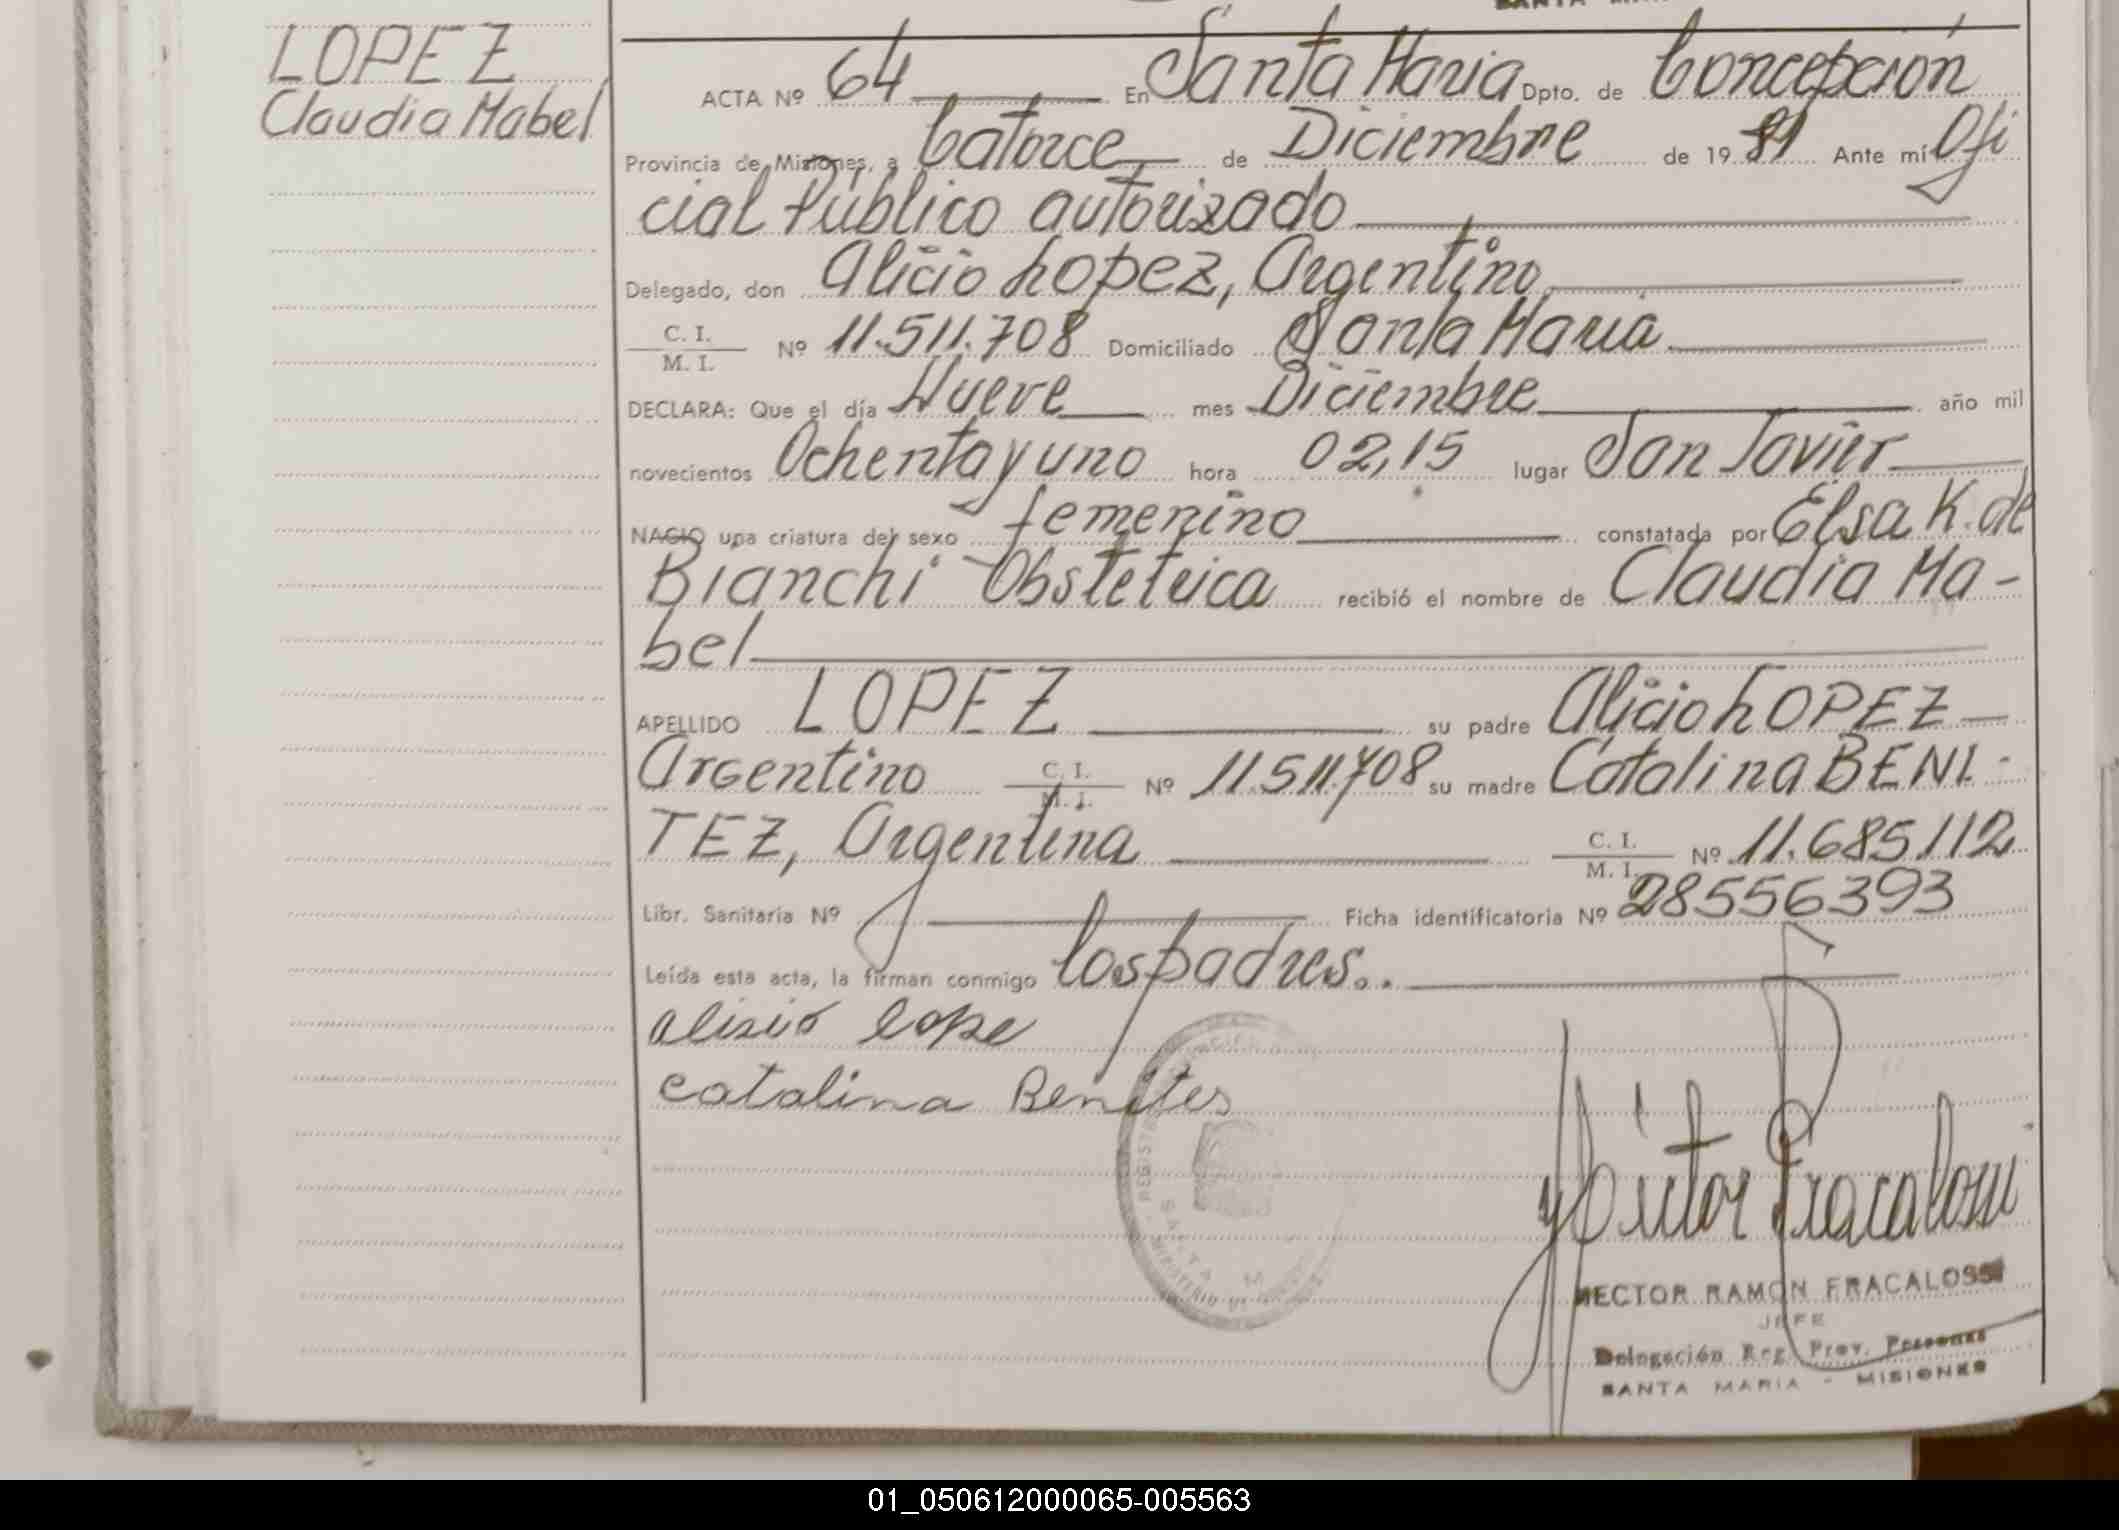 LOPEZ
Claudia Mabel
ACTA Nº 64 En Santa Maria Dpto. de Concepción
Provincia de Misiones, a Catorce de Diciembre de 1981 Ante mí Ofi
cial Público autorizado
Delegado, don Alicio Lopez, Argentino
C. I.
M. I. Nº 11.511.708 Domiciliado Santa Maria
DECLARA: Que el día Nueve mes Diciembre año mil
novecientos Ochenta y uno hora 02,15 lugar San Javier
NACIO una criatura del sexo femenino constatada por Elsa K. de
Bianchi Obstetrica recibió el nombre de Claudia Ma-
bel
APELLIDO LOPEZ su padre Alicio LOPEZ
Argentino C. I. M. I. Nº 11.511.708 su madre Catalina BENI-
TEZ, Argentina C. I. M. I. Nº 11.685112
Libr. Sanitaria Nº Ficha identificatoria Nº 28556393
Leída esta acta, la firman conmigo los padres..
alisio lope
catalina Benites
Héctor Fracalossi
HECTOR RAMON FRACALOSSI
JEFE
Delegación Reg. Prov. Personas
SANTA MARIA - MISIONES
01_050612000065-005563